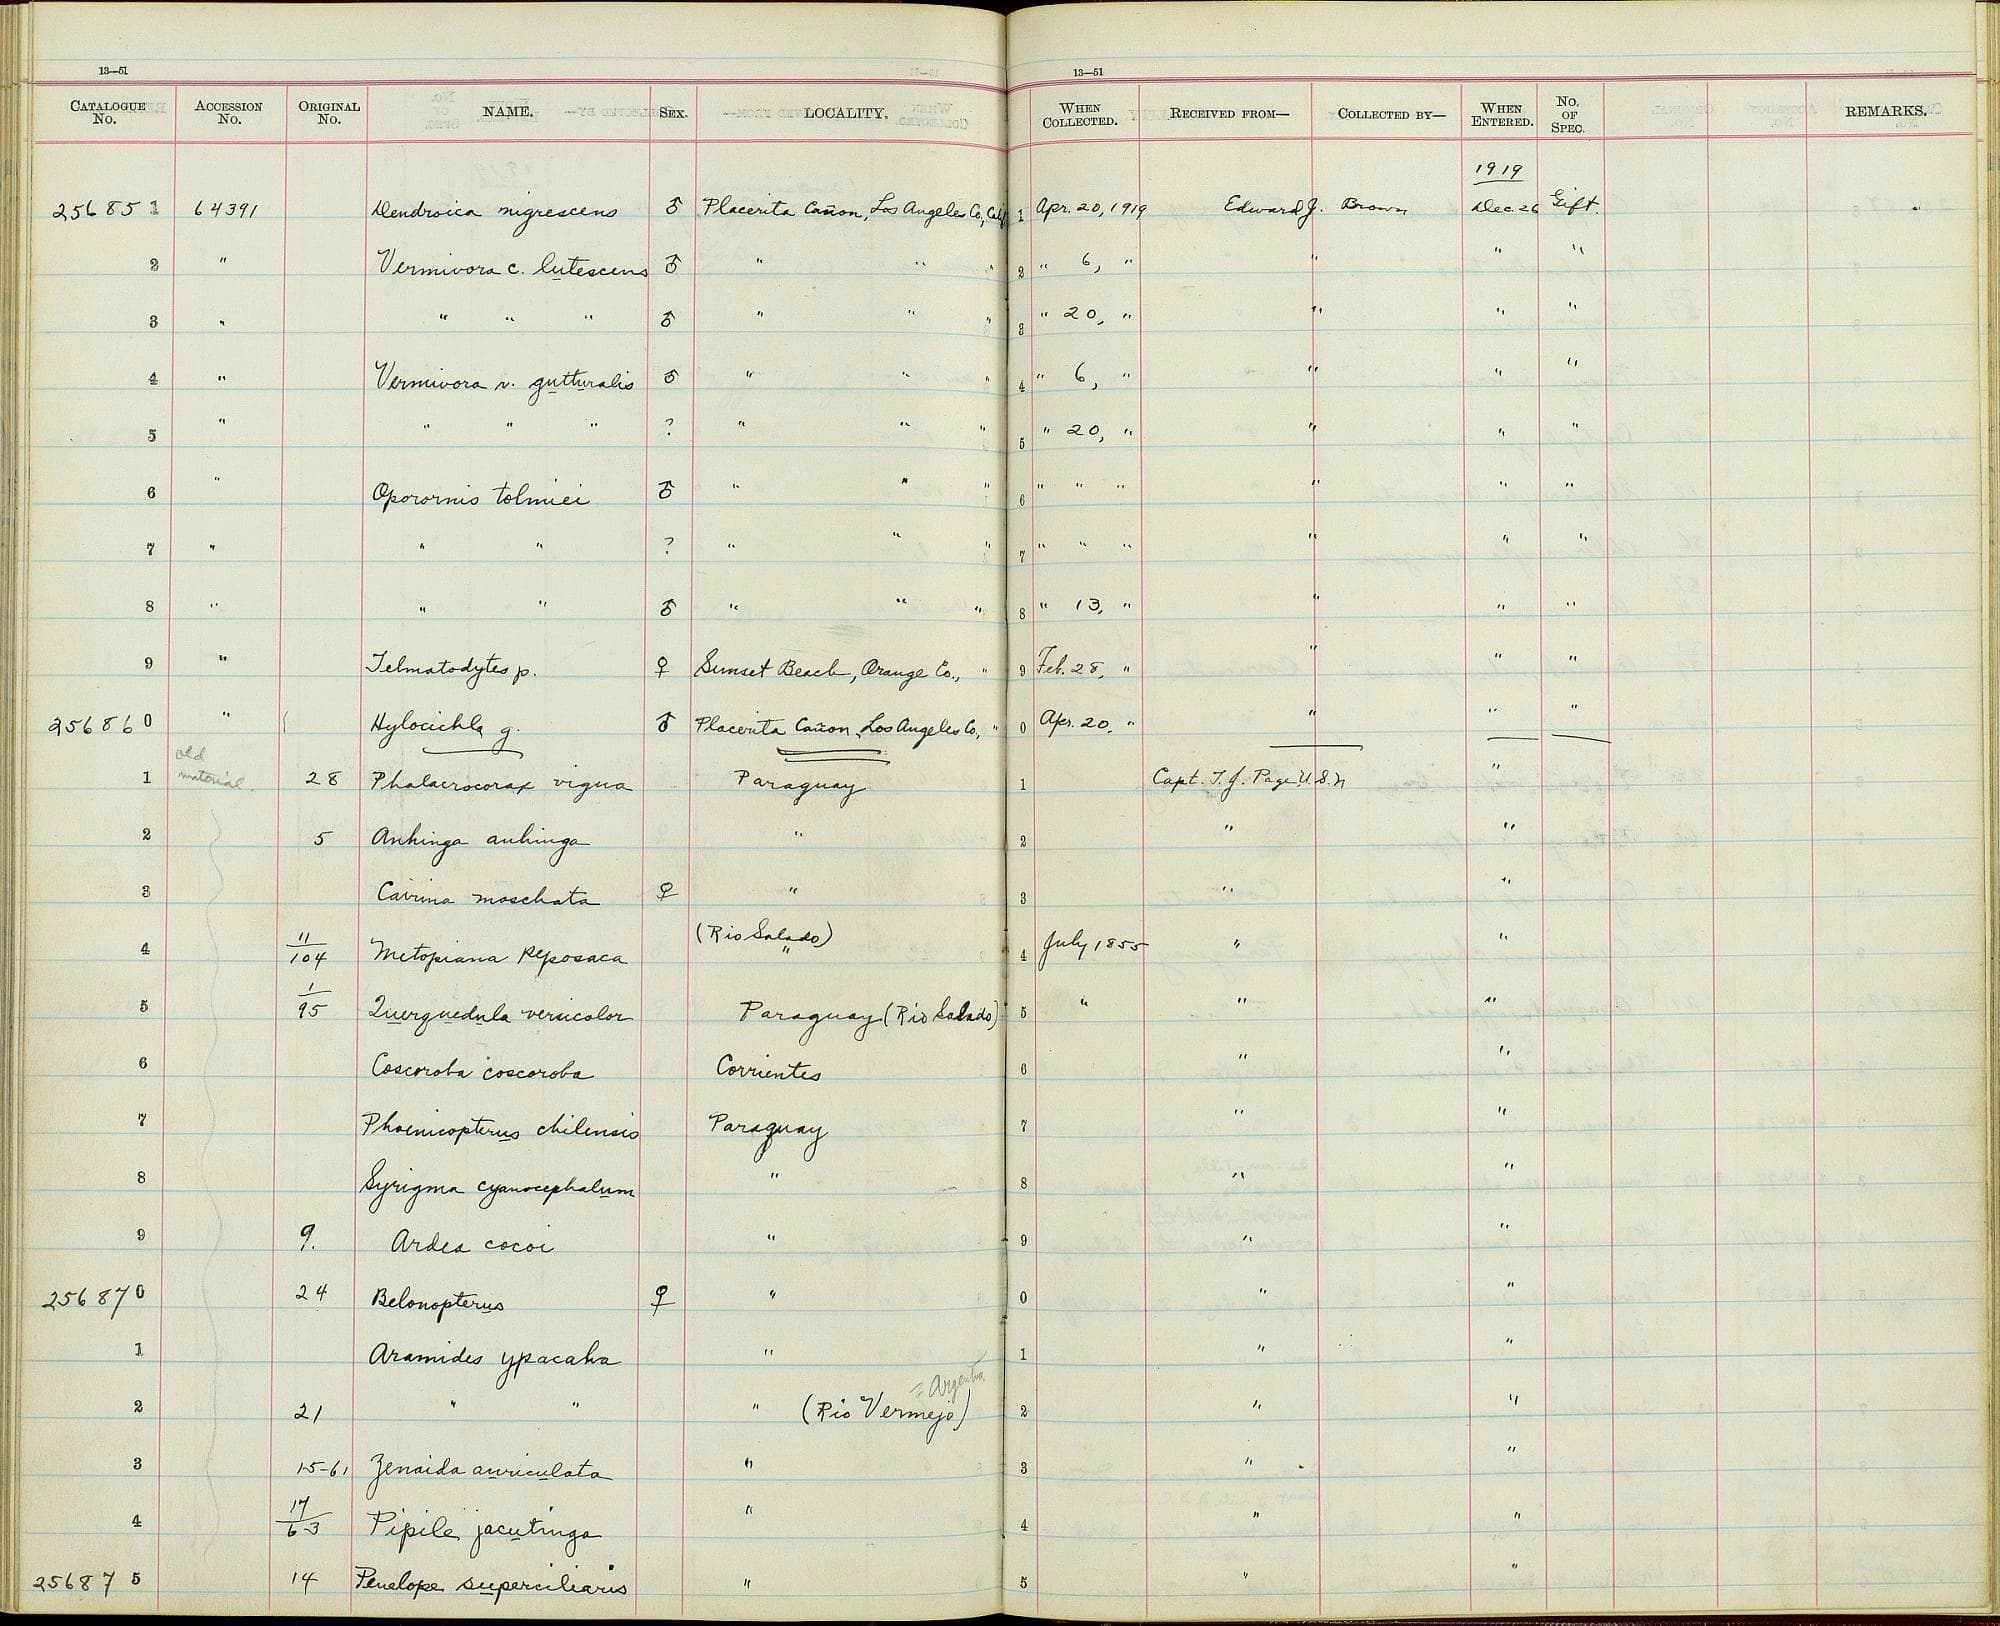 13—51
13—51
CATALOGUE No. ACCESSION No. ORIGINAL No. NAME. SEX. LOCALITY. WHEN COLLECTED. RECEIVED FROM— COLLECTED BY— WHEN ENTERED. No. OF SPEC. REMARKS.
1919
256851 64391 Dendroica nigrescens ♂ Placerita Cañon, Los Angeles Co., Calif 1 Apr. 20, 1919 Edward J. Brown Dec. 26 Gift.
2 " Vermivora c. lutescens ♂ " " " 2 " 6, " " " "
3 " " " " ♂ " " " 3 " 20, " " " "
4 " Vermivora r. gutturalis ♂ " " " 4 " 6, " " " "
5 " " " " ? " " " 5 " 20, " " " "
6 " Oporornis tolmiei ♂ " " " 6 " " " " " "
7 " " " ? " " " 7 " " " " " "
8 " " " ♂ " " " 8 " 13, " " " "
9 " Telmatodytes p. ♀ Sunset Beach, Orange Co., " 9 Feb. 28, " " " "
256860 " Hylocichla g. ♂ Placerita Cañon, Los Angeles Co., " 0 Apr. 20. " " " "
old
1 material. 28 Phalacrocorax vigua Paraguay 1 Capt. T. J. Page U.S.N "
2 5 Anhinga anhinga " 2 " "
3 Cairina moschata ♀ " 3 " "
(Rio Salado)
4 11/104 Metopiana peposaca " 4 July 1855 " "
5 1/95 Querquedula versicolor Paraguay (Rio Salado) 5 " " "
6 Coscoroba coscoroba Corrientes 6 " "
7 Phoenicopterus chilensis Paraguay 7 " "
8 Syrigma cyanocephalum " 8 " "
9 9. Ardea cocoi " 9 " "
256870 24 Belonopterus ♀ " 0 " "
1 Aramides ypacaha " 1 " "
= Argentina
2 21 " " " (Rio Vermejo) 2 " "
3 15-61 Zenaida auriculata " 3 " "
4 17/63 Pipile jacutinga " 4 " "
256875 14 Penelope superciliaris " 5 " "